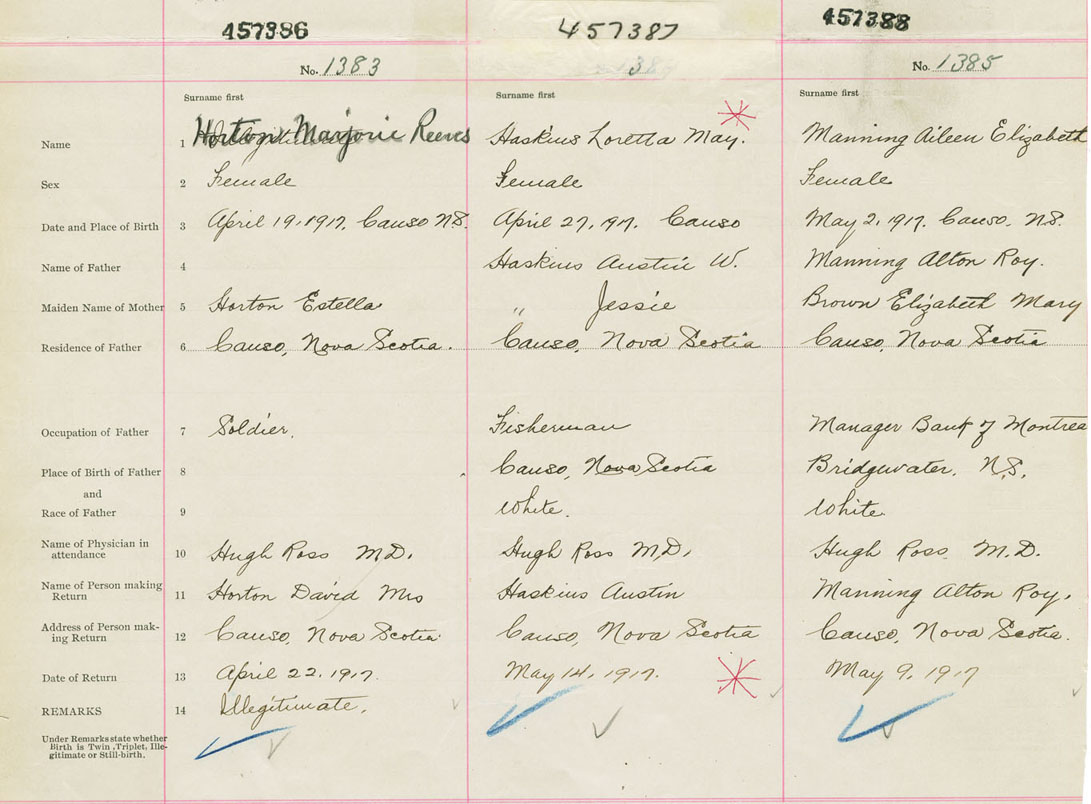 457386 457387 457388
No. 1383 No. 1385
Surname first Surname first Surname first
Name 1 Horton Marjorie Reeves Haskins Loretta May. Manning Aileen Elizabeth
Sex 2 Female Female Female
Date and Place of Birth 3 April 19, 1917, Canso N.S. April 27, 1917. Canso May 2, 1917. Canso, N.S.
Name of Father 4 Haskins Austin W. Manning Alton Roy.
Maiden Name of Mother 5 Horton Estella " Jessie Brown Elizabeth Mary
Residence of Father 6 Canso, Nova Scotia. Canso, Nova Scotia Canso, Nova Scotia
Occupation of Father 7 Soldier. Fisherman Manager Bank of Montrea
Place of Birth of Father 8 Canso, Nova Scotia Bridgewater, N.S.
and
Race of Father 9 White. White
Name of Physician in
attendance 10 Hugh Ross M.D. Hugh Ross M.D. Hugh Ross M.D.
Name of Person making
Return 11 Horton David Mrs Haskins Austin Manning Alton Roy.
Address of Person mak-
ing Return 12 Canso, Nova Scotia Canso, Nova Scotia Canso, Nova Scotia.
Date of Return 13 April 22, 1917. May 14, 1917. May 9, 1917
REMARKS 14 Illegitimate.
Under Remarks state whether
Birth is Twin, Triplet, Ille-
gitimate or Still-birth.